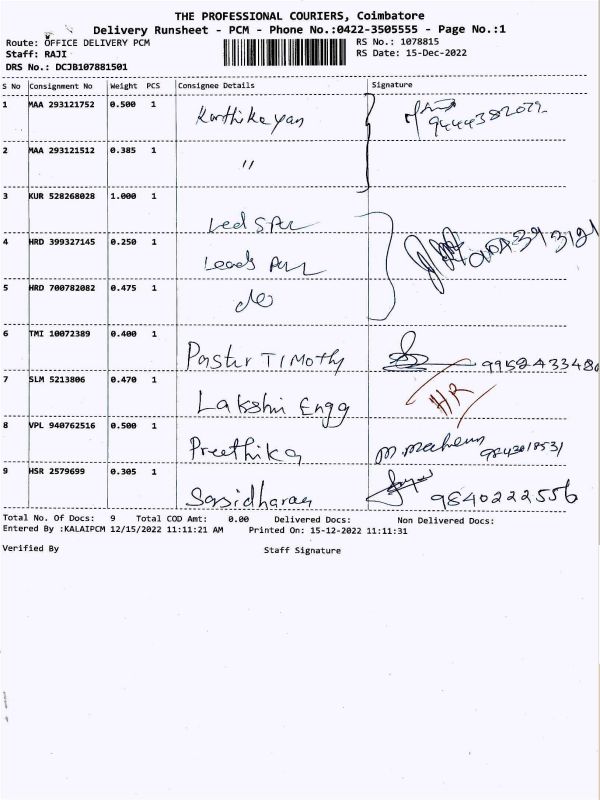 THE PROFESSIONAL COURIERS, Coimbatore
Delivery Runsheet - PCM - Phone No.:0422-3505555 - Page No.:1
Route: OFFICE DELIVERY PCM
RS No.: 1078815
Staff: RAJI
RS Date: 15-Dec-2022
DRS No.: DCJB107881501
S No Consignment No Weight PCS Consignee Details Signature
1 MAA 293121752 0.500 1 Karthikeyan
2 MAA 293121512 0.385 1 "
3 KUR 528268028 1.000 1
4 HRD 399327145 0.250 1
5 HRD 700782082 0.475 1 do
6 TMI 10072389 0.400 1 Paster TIMOTHY
7 SLM 5213806 0.470 1 Lakshmi Engg HR
8 VPL 940762516 0.500 1 Preethika
9 HSR 2579699 0.305 1 Sasidharan 9840222556
Total No. Of Docs: 9 Total COD Amt: 0.00 Delivered Docs: Non Delivered Docs:
Entered By :KALAIPCM 12/15/2022 11:11:21 AM Printed On: 15-12-2022 11:11:31
Verified By Staff Signature